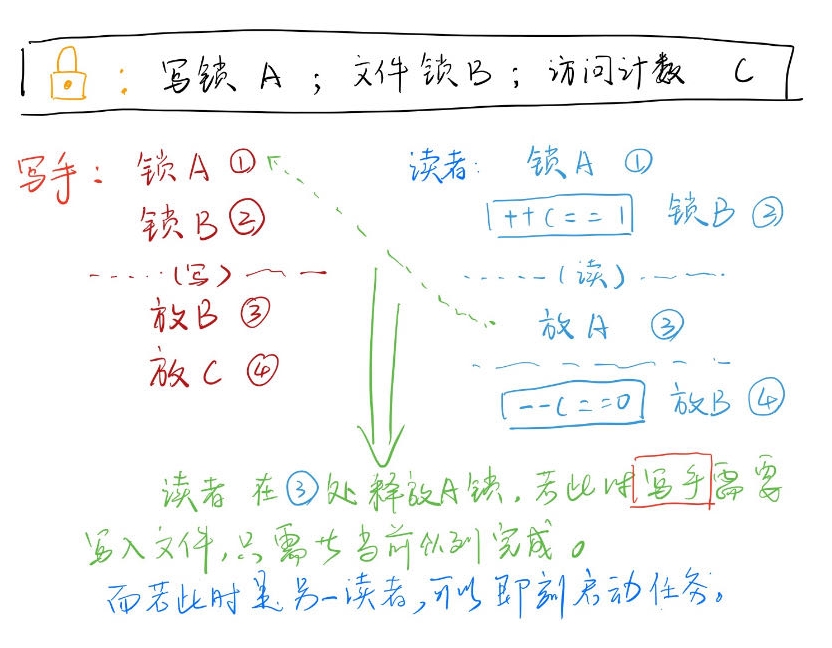 ：写锁 A ；文件锁 B ；访问计数 C
写手： 锁 A ①
锁 B ②
(写)
放 B ③
放 C ④
读者： 锁 A ①
++C==1 锁 B ②
(读)
放 A ③
--C==0 放 B ④
读者 在 ③ 处 释放 A 锁，若此时写手需要
写入文件，只需 当前队列完成。
而若此时是另一读者，可以即刻启动任务。